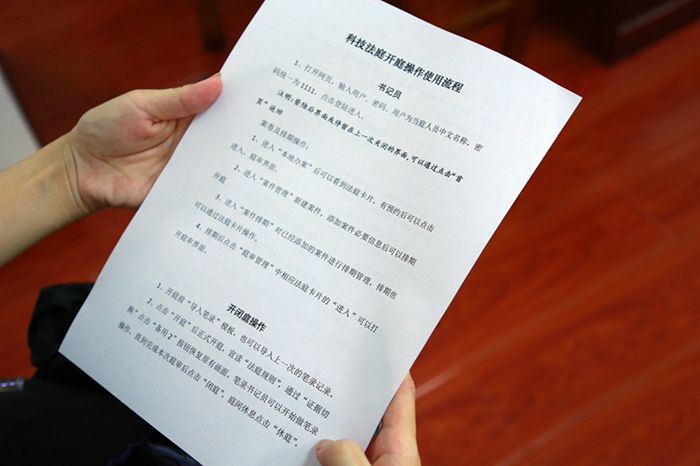 科技法庭开庭操作使用流程
书记员
1、打开网页，输入用户、密码，用户为当庭人员中文名称，密
码统一为 1111. 点击登陆进入。
说明：登陆后界面或停留在上一次关闭的界面，可以通过点击“首
页”返回
案卷及排期操作：
1、进入“本地办案”后可以看到法庭卡片，有预约后可以点击
进入，庭审界面。
2、进入“案件管理”新建案件，添加案件必要信息后可以排期
开庭
3、进入“案件排期”对已经添加的案件进行排期管理，排期也
可以通过法庭卡片操作。
4、排期后点击“庭审管理”中相应法庭卡片的“进入”可以打
开庭审界面。
开闭庭操作
1、开庭前“导入笔录”模板，也可以导入上一次的笔录记录。
2、点击“开庭”后正式开庭，宣读“法庭规则”，通过“证据切
换”点击“备用2”按钮恢复原有画面，笔录书记员可以开始做笔录
操作，直到完成本次庭审后点击“闭庭”，庭间休息点击“休庭”。